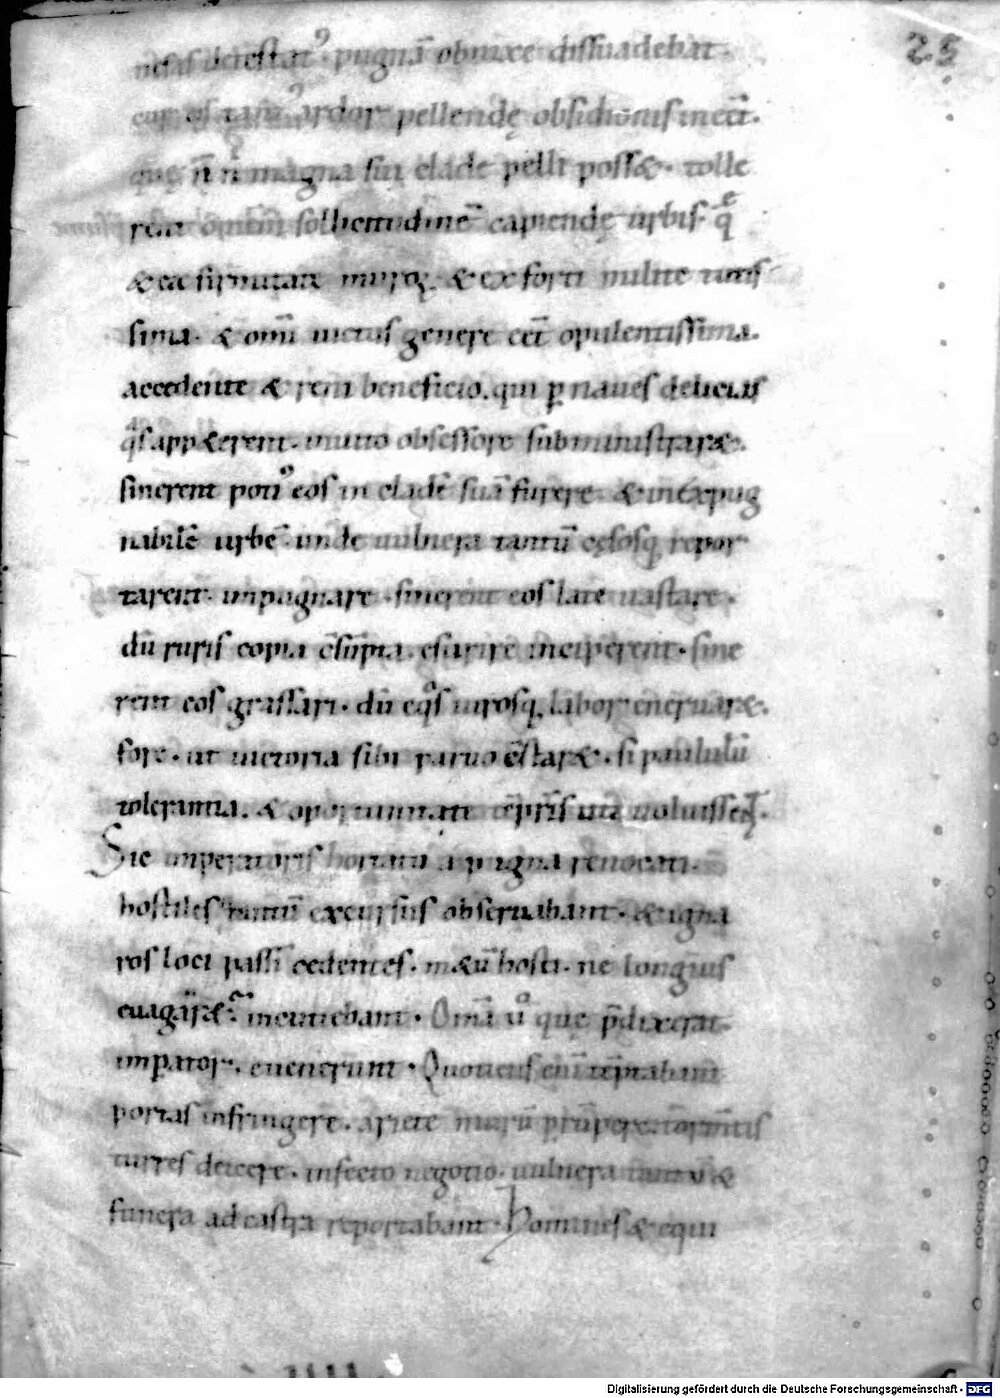 25
detestatꝰ · pugnā obnixe dissuadebat ·
ardor pellendę obsidionis
quę n̄ magna sui clade pelli possæ · tolle
rent sollicitudinē capiendę urbis · q̄
& ex firmitate muroꝝ · & ex forti milite tutis
sima · & omī uictus genere eēt opulentissima.
accedente & reni beneficio . qui ꝑ naues delicias
q̄s appæerent · inuito obsessore subministraræ.
sinerent potiꝰ eos in cladē suā furere · & inexpug
nabilē urbē · unde uulnera tantū cęsosq; repor
tarent · impugnare · sinerent eos late uastare ·
dū ruris copia c̄sūpta . esurire inciperent · sine
rent eos grassari · dū eq̊s uirosq; labor eneruaræ.
fore · ut uictoria sibi paruo c̄staræ · si paululū
tolerantia . & oportunitate tēpris uti uoluissent .
Sic imperatoris hortatu a pugna reuocati .
hostiles tantū excursus obseruabant · & igna
ros loci passī cedentes · mæū hosti · ne longius
euagaræ᷑ · incutiebant · Om̄a ů quę p̄dixerat
imꝑator · euenerunt · Quotiens enī tēptabant
portas infringere · ariete murū prūpere · torm̄tis
turres deicere · infecto negotio · uulnera tantū &
funera ad castra reportabant · Homines & equi
Digitalisierung gefördert durch die Deutsche Forschungsgemeinschaft - DFG